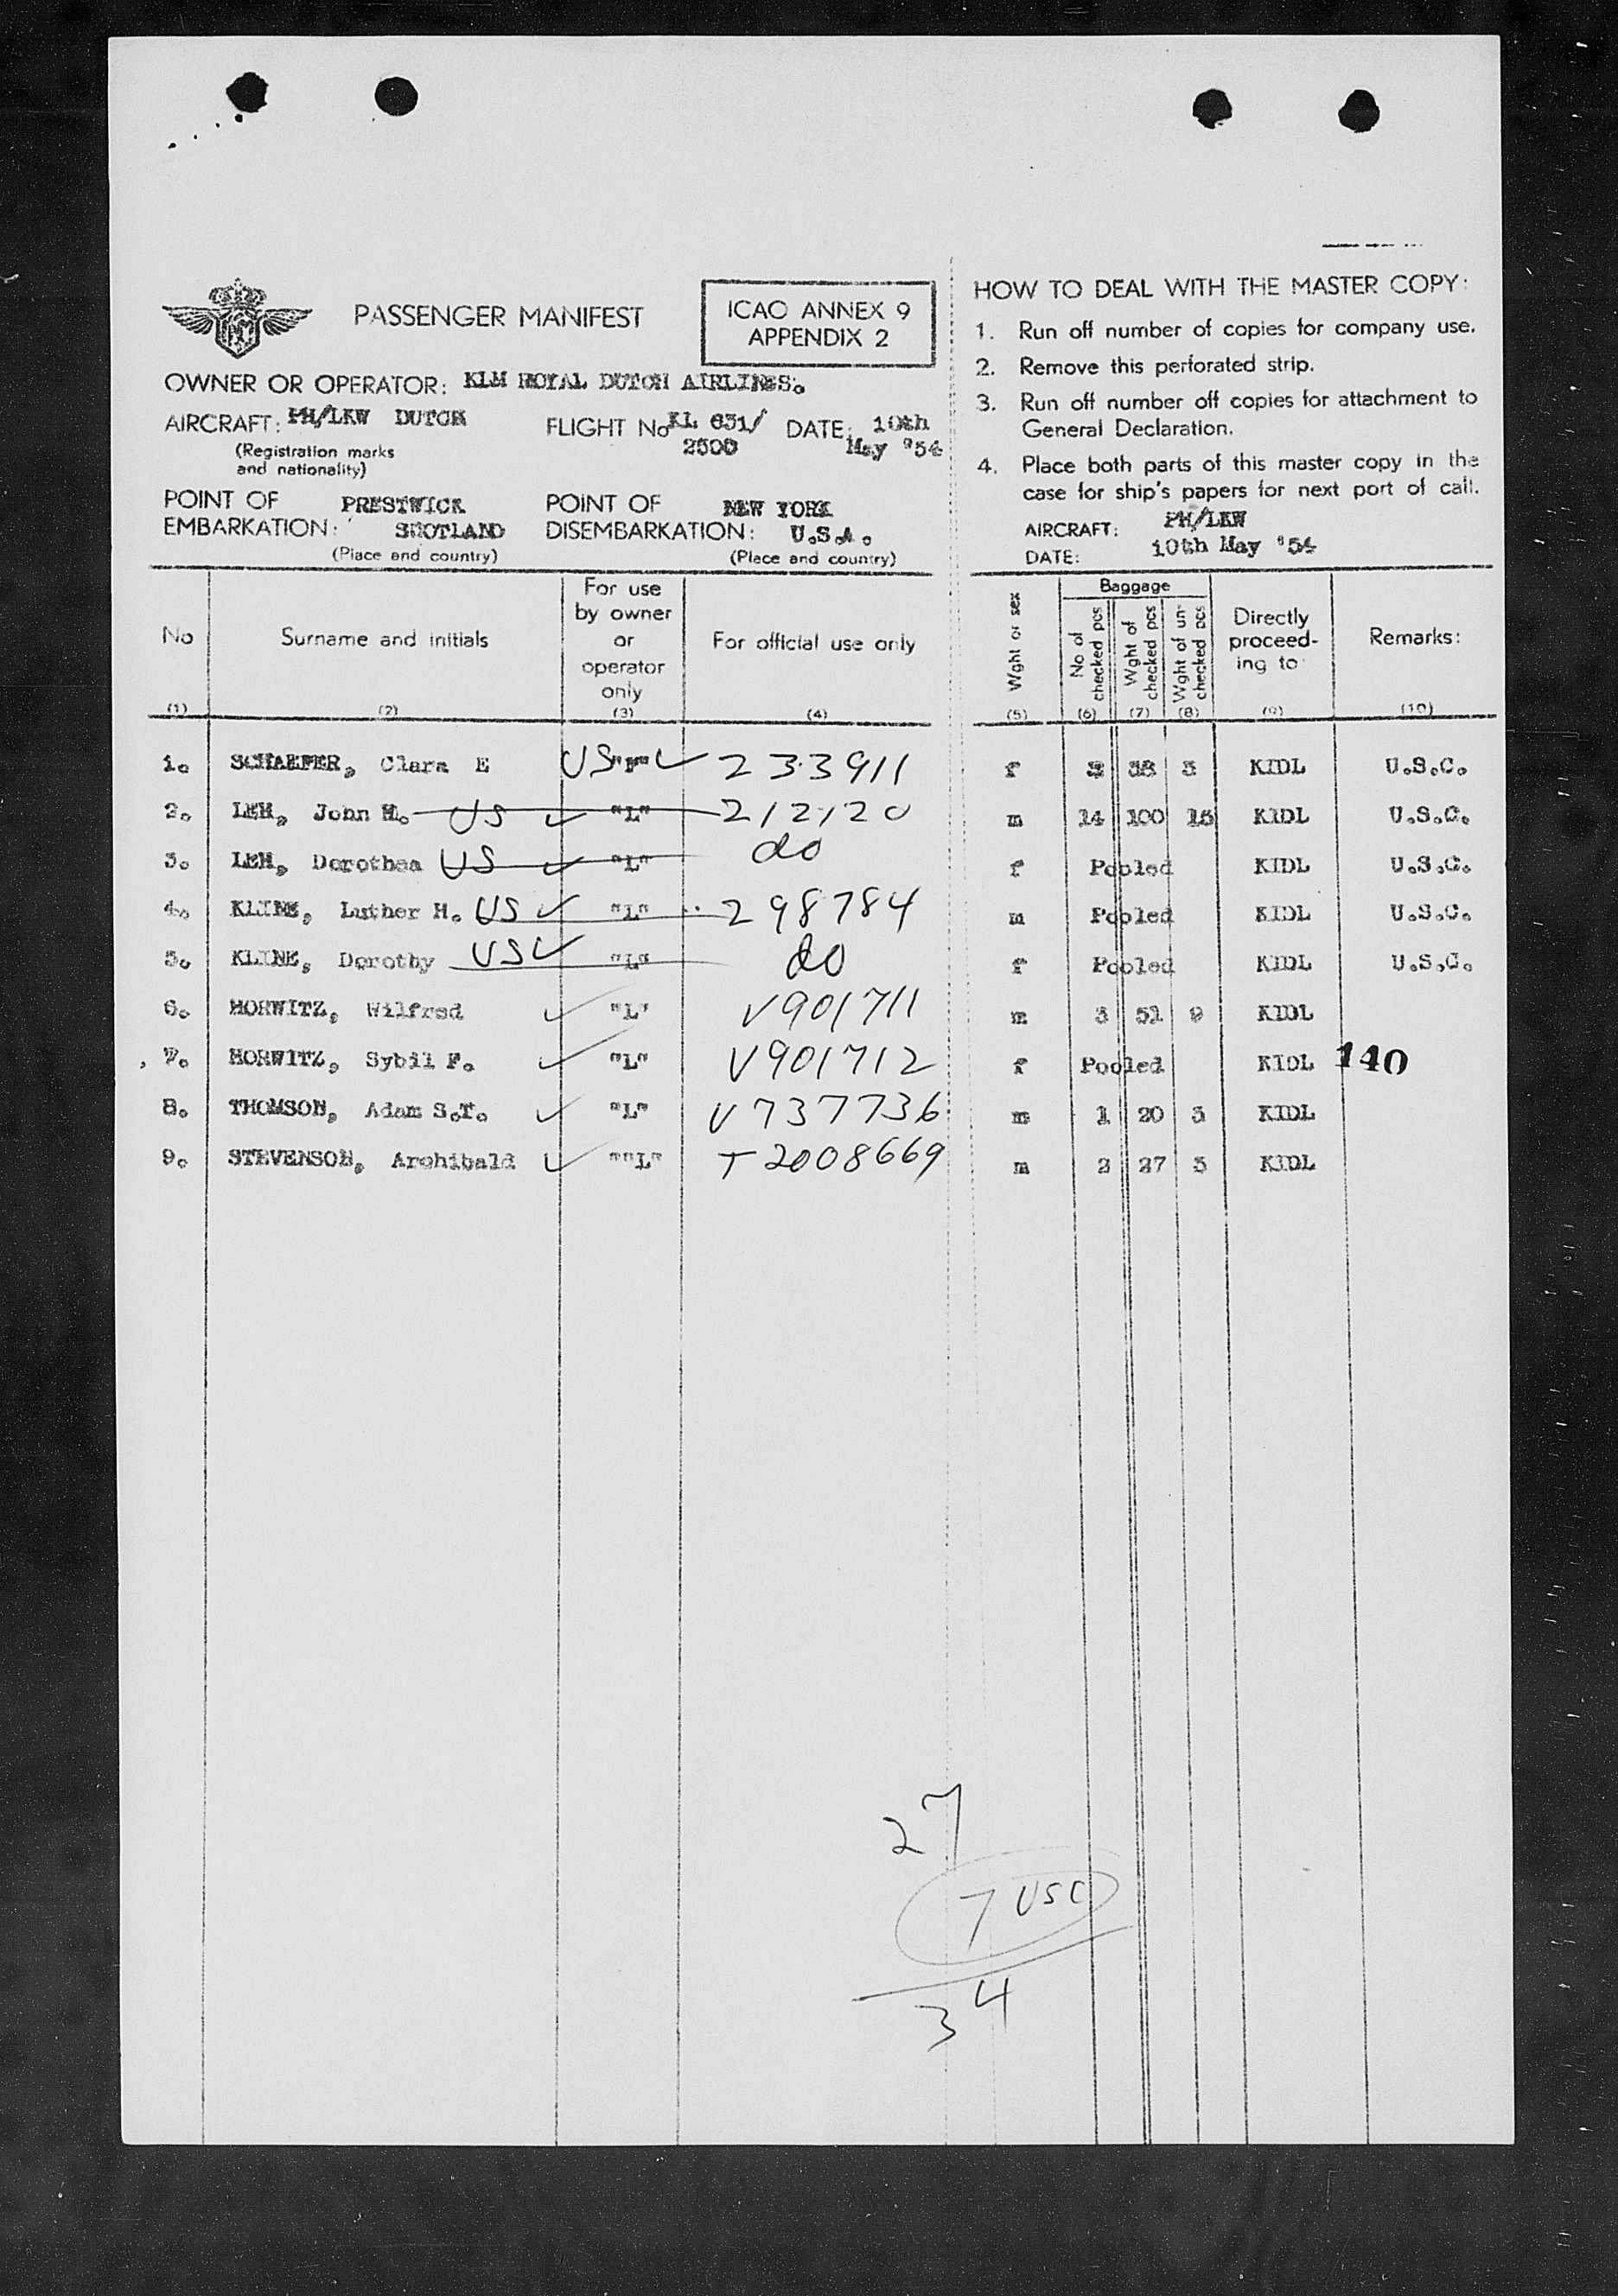 PASSENGER MANIFEST
ICAO ANNEX 9
APPENDIX 2
OWNER OR OPERATOR: KLM ROYAL DUTCH AIRLINES.
AIRCRAFT: PH/LKW DUTCH
(Registration marks
and nationality)
FLIGHT No KL 631/
2500
DATE: 10th
May '54
POINT OF
EMBARKATION: PRESTWICK
SCOTLAND
(Place and country)
POINT OF
DISEMBARKATION: NEW YORK
U.S.A.
(Place and country)
HOW TO DEAL WITH THE MASTER COPY:
1. Run off number of copies for company use.
2. Remove this perforated strip.
3. Run off number off copies for attachment to
General Declaration.
4. Place both parts of this master copy in the
case for ship's papers for next port of call.
AIRCRAFT: PH/LKW
DATE: 10th May '54
No
(1)
Surname and initials
(2)
For use
by owner
or
operator
only
(3)
For official use only
(4)
Wght or sex
(5)
Baggage
No of
checked pcs
(6)
Wght of
checked pcs
(7)
Wght of un-
checked pcs
(8)
Directly
proceed-
ing to:
(9)
Remarks:
(10)
1. SCHAEFER, Clara E US "F" 233911 f 38 3 KIDL U.S.C.
2. LEH, John H. US "L" 212120 m 14 100 15 KIDL U.S.C.
3. LEH, Dorothea US "L" do f Pooled KIDL U.S.C.
4. KLINE, Luther H. US "L" 298784 m Pooled KIDL U.S.C.
5. KLINE, Dorothy US "L" do f Pooled KIDL U.S.C.
6. HORWITZ, Wilfred "L" V901711 m 3 51 9 KIDL
7. HORWITZ, Sybil F. "L" V901712 f Pooled KIDL 140
8. THOMSON, Adam S.T. "L" V737736 m 1 20 3 KIDL
9. STEVENSON, Archibald ""L" T2008669 m 2 27 3 KIDL
27
7 USC
34